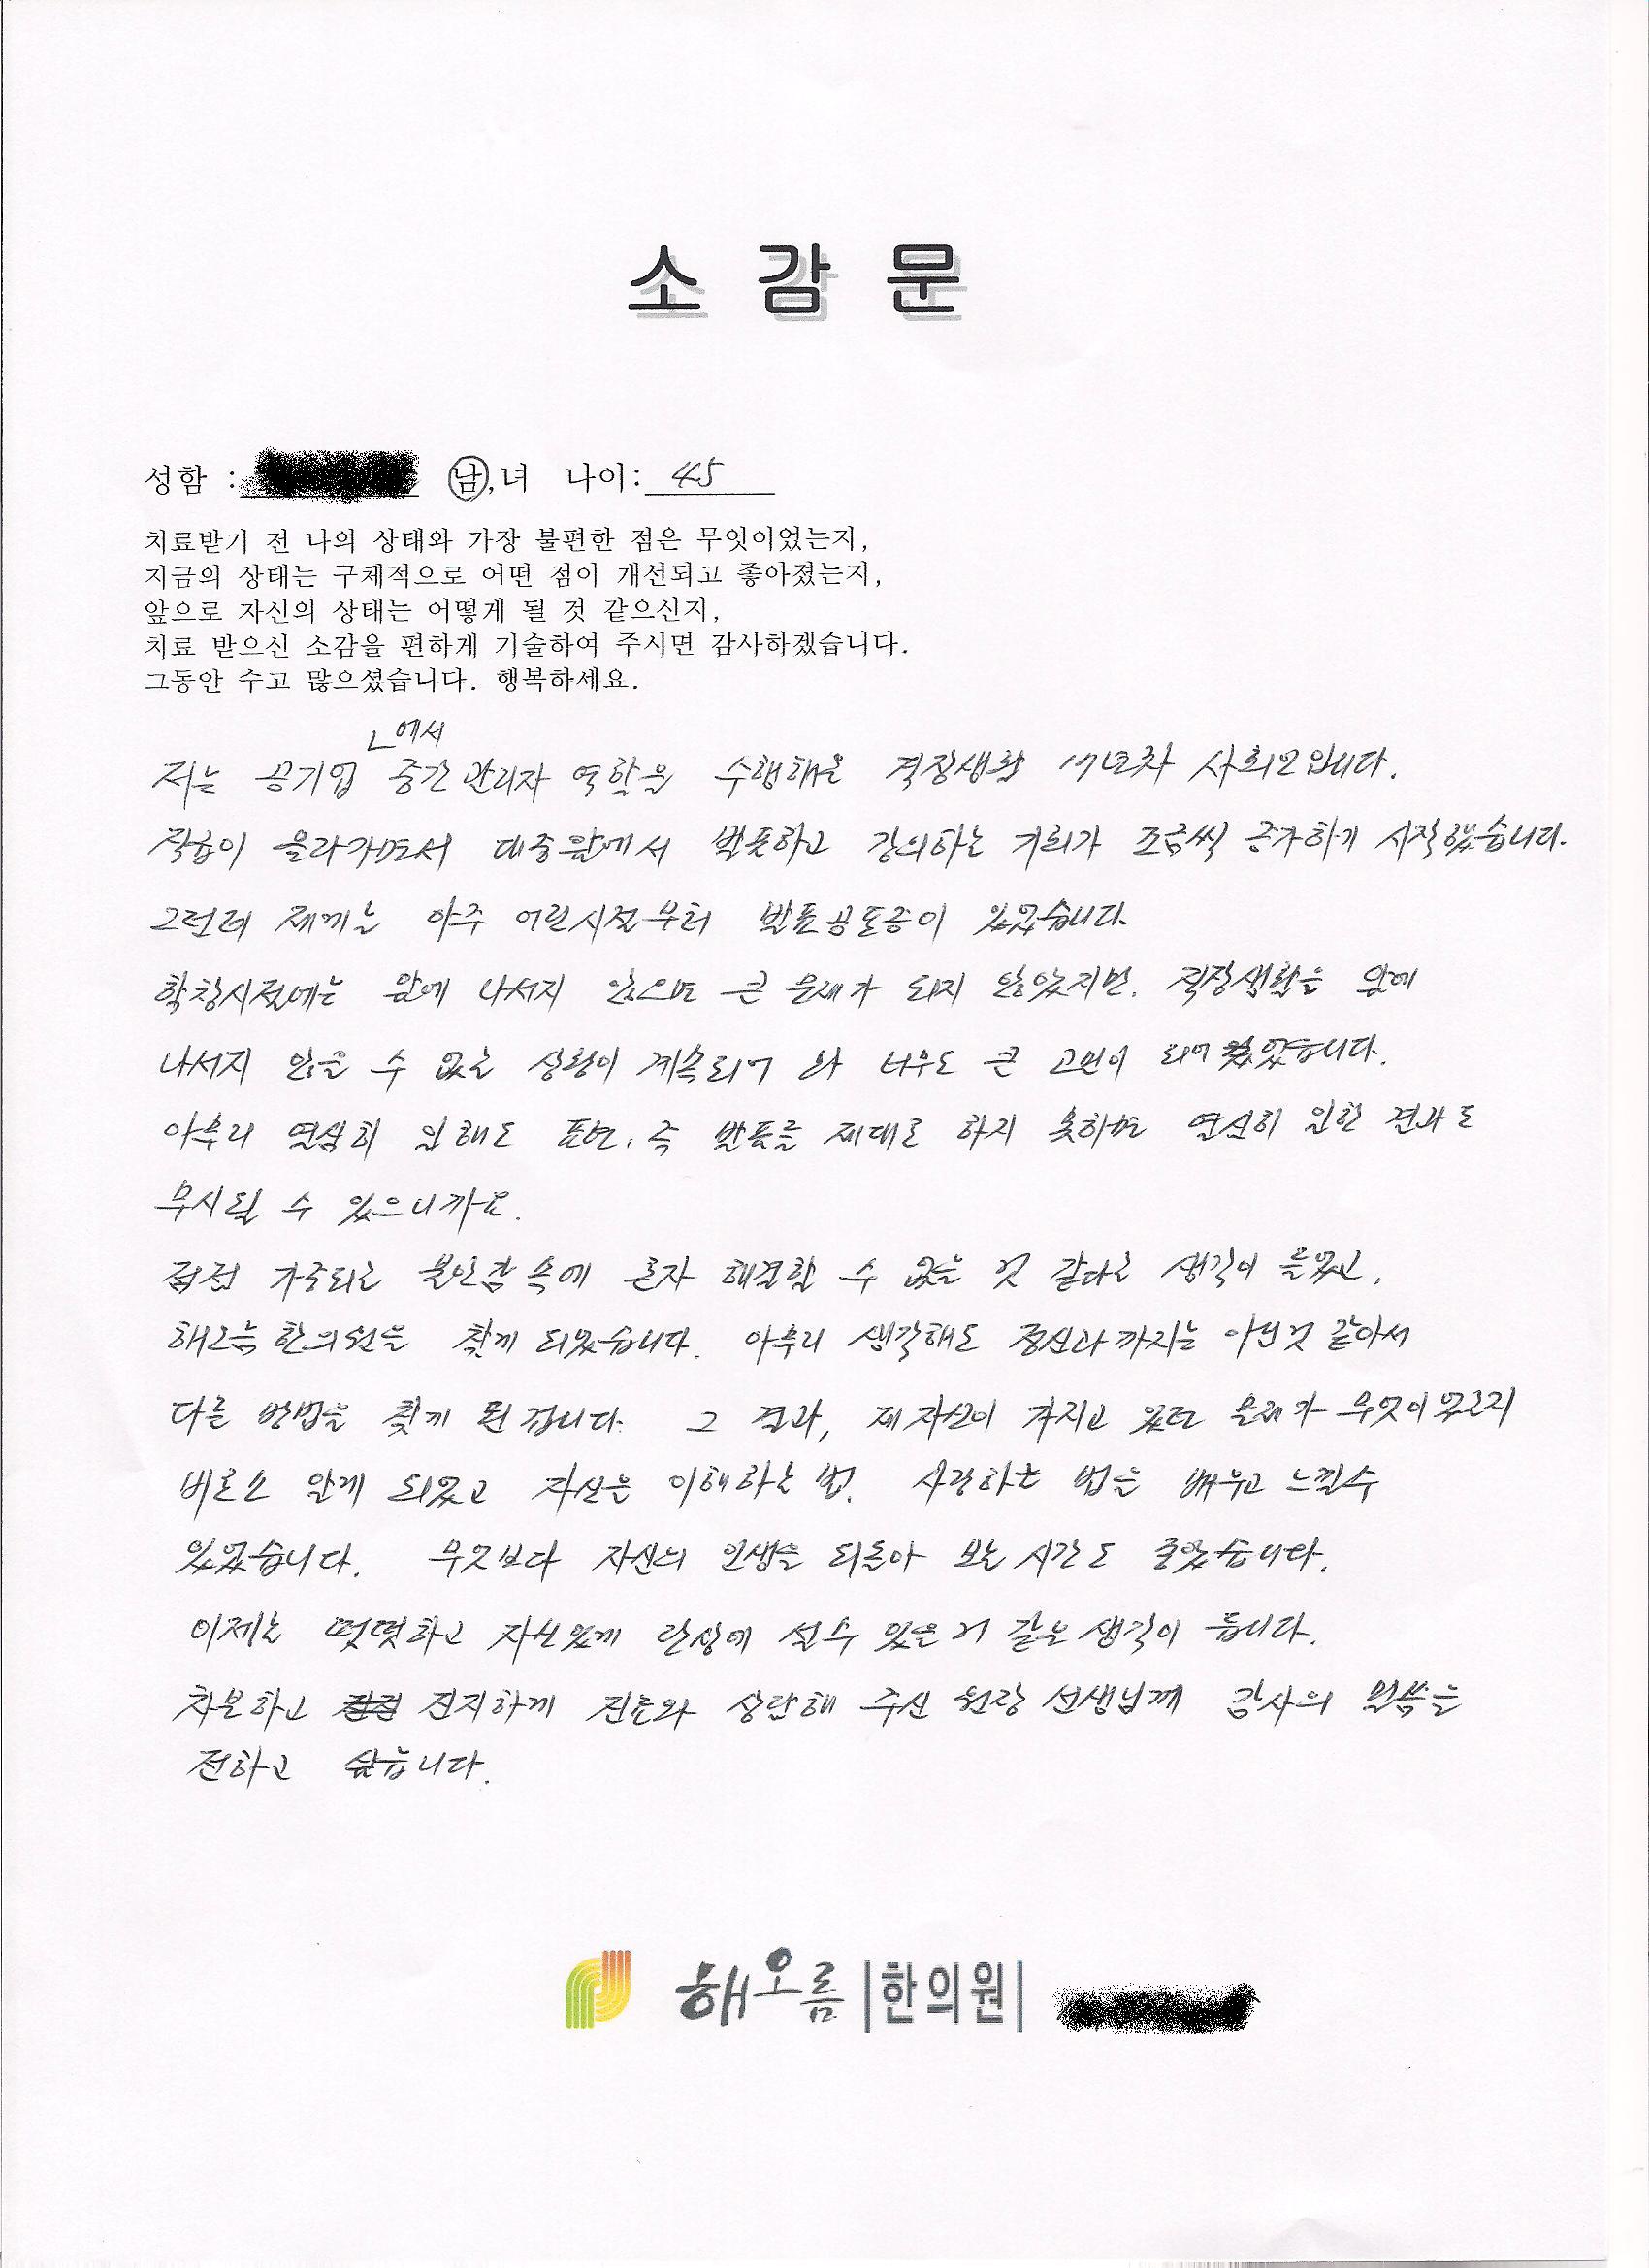 소 감 문
성함 : 남,녀 나이: 45
치료받기 전 나의 상태와 가장 불편한 점은 무엇이었는지,
지금의 상태는 구체적으로 어떤 점이 개선되고 좋아졌는지,
앞으로 자신의 상태는 어떻게 될 것 같으신지,
치료 받으신 소감을 편하게 기술하여 주시면 감사하겠습니다.
그동안 수고 많으셨습니다. 행복하세요.
저는 공기업에서 중간관리자 역할을 수행해온 직장생활 17년차 사회인입니다.
직급이 올라가면서 대중앞에서 발표하고 강의하는 기회가 조금씩 증가하기 시작했습니다.
그런데 제게는 아주 어린시절부터 발표공포증이 있었습니다.
학창시절에는 앞에 나서지 않으면 큰 문제가 되지 않았지만, 직장생활은 앞에
나서지 않을 수 없는 상황이 계속되어 와 너무도 큰 고민이 되어 왔었습니다.
아무리 열심히 일해도 표현, 즉 발표를 제대로 하지 못하면 열심히 일한 결과도
무시될 수 있으니까요.
점점 가중되는 불안감 속에 혼자 해결할 수 없을 것 같다는 생각이 들었고,
해오름한의원을 찾게 되었습니다. 아무리 생각해도 정신과까지는 아닌것 같아서
다른 방법을 찾게 된 겁니다. 그 결과, 제 자신이 가지고 있던 문제가 무엇이었는지
비로소 알게 되었고 자신을 이해하는 법, 사랑하는 법을 배우고 느낄수
있었습니다. 무엇보다 자신의 인생을 되돌아 보는 시간도 좋았습니다.
이제는 떳떳하고 자신있게 단상에 설수 있을 거 같은 생각이 듭니다.
차분하고 진지하게 진료와 상담해 주신 원장 선생님께 감사의 말씀을
전하고 싶습니다.
해오름 한의원